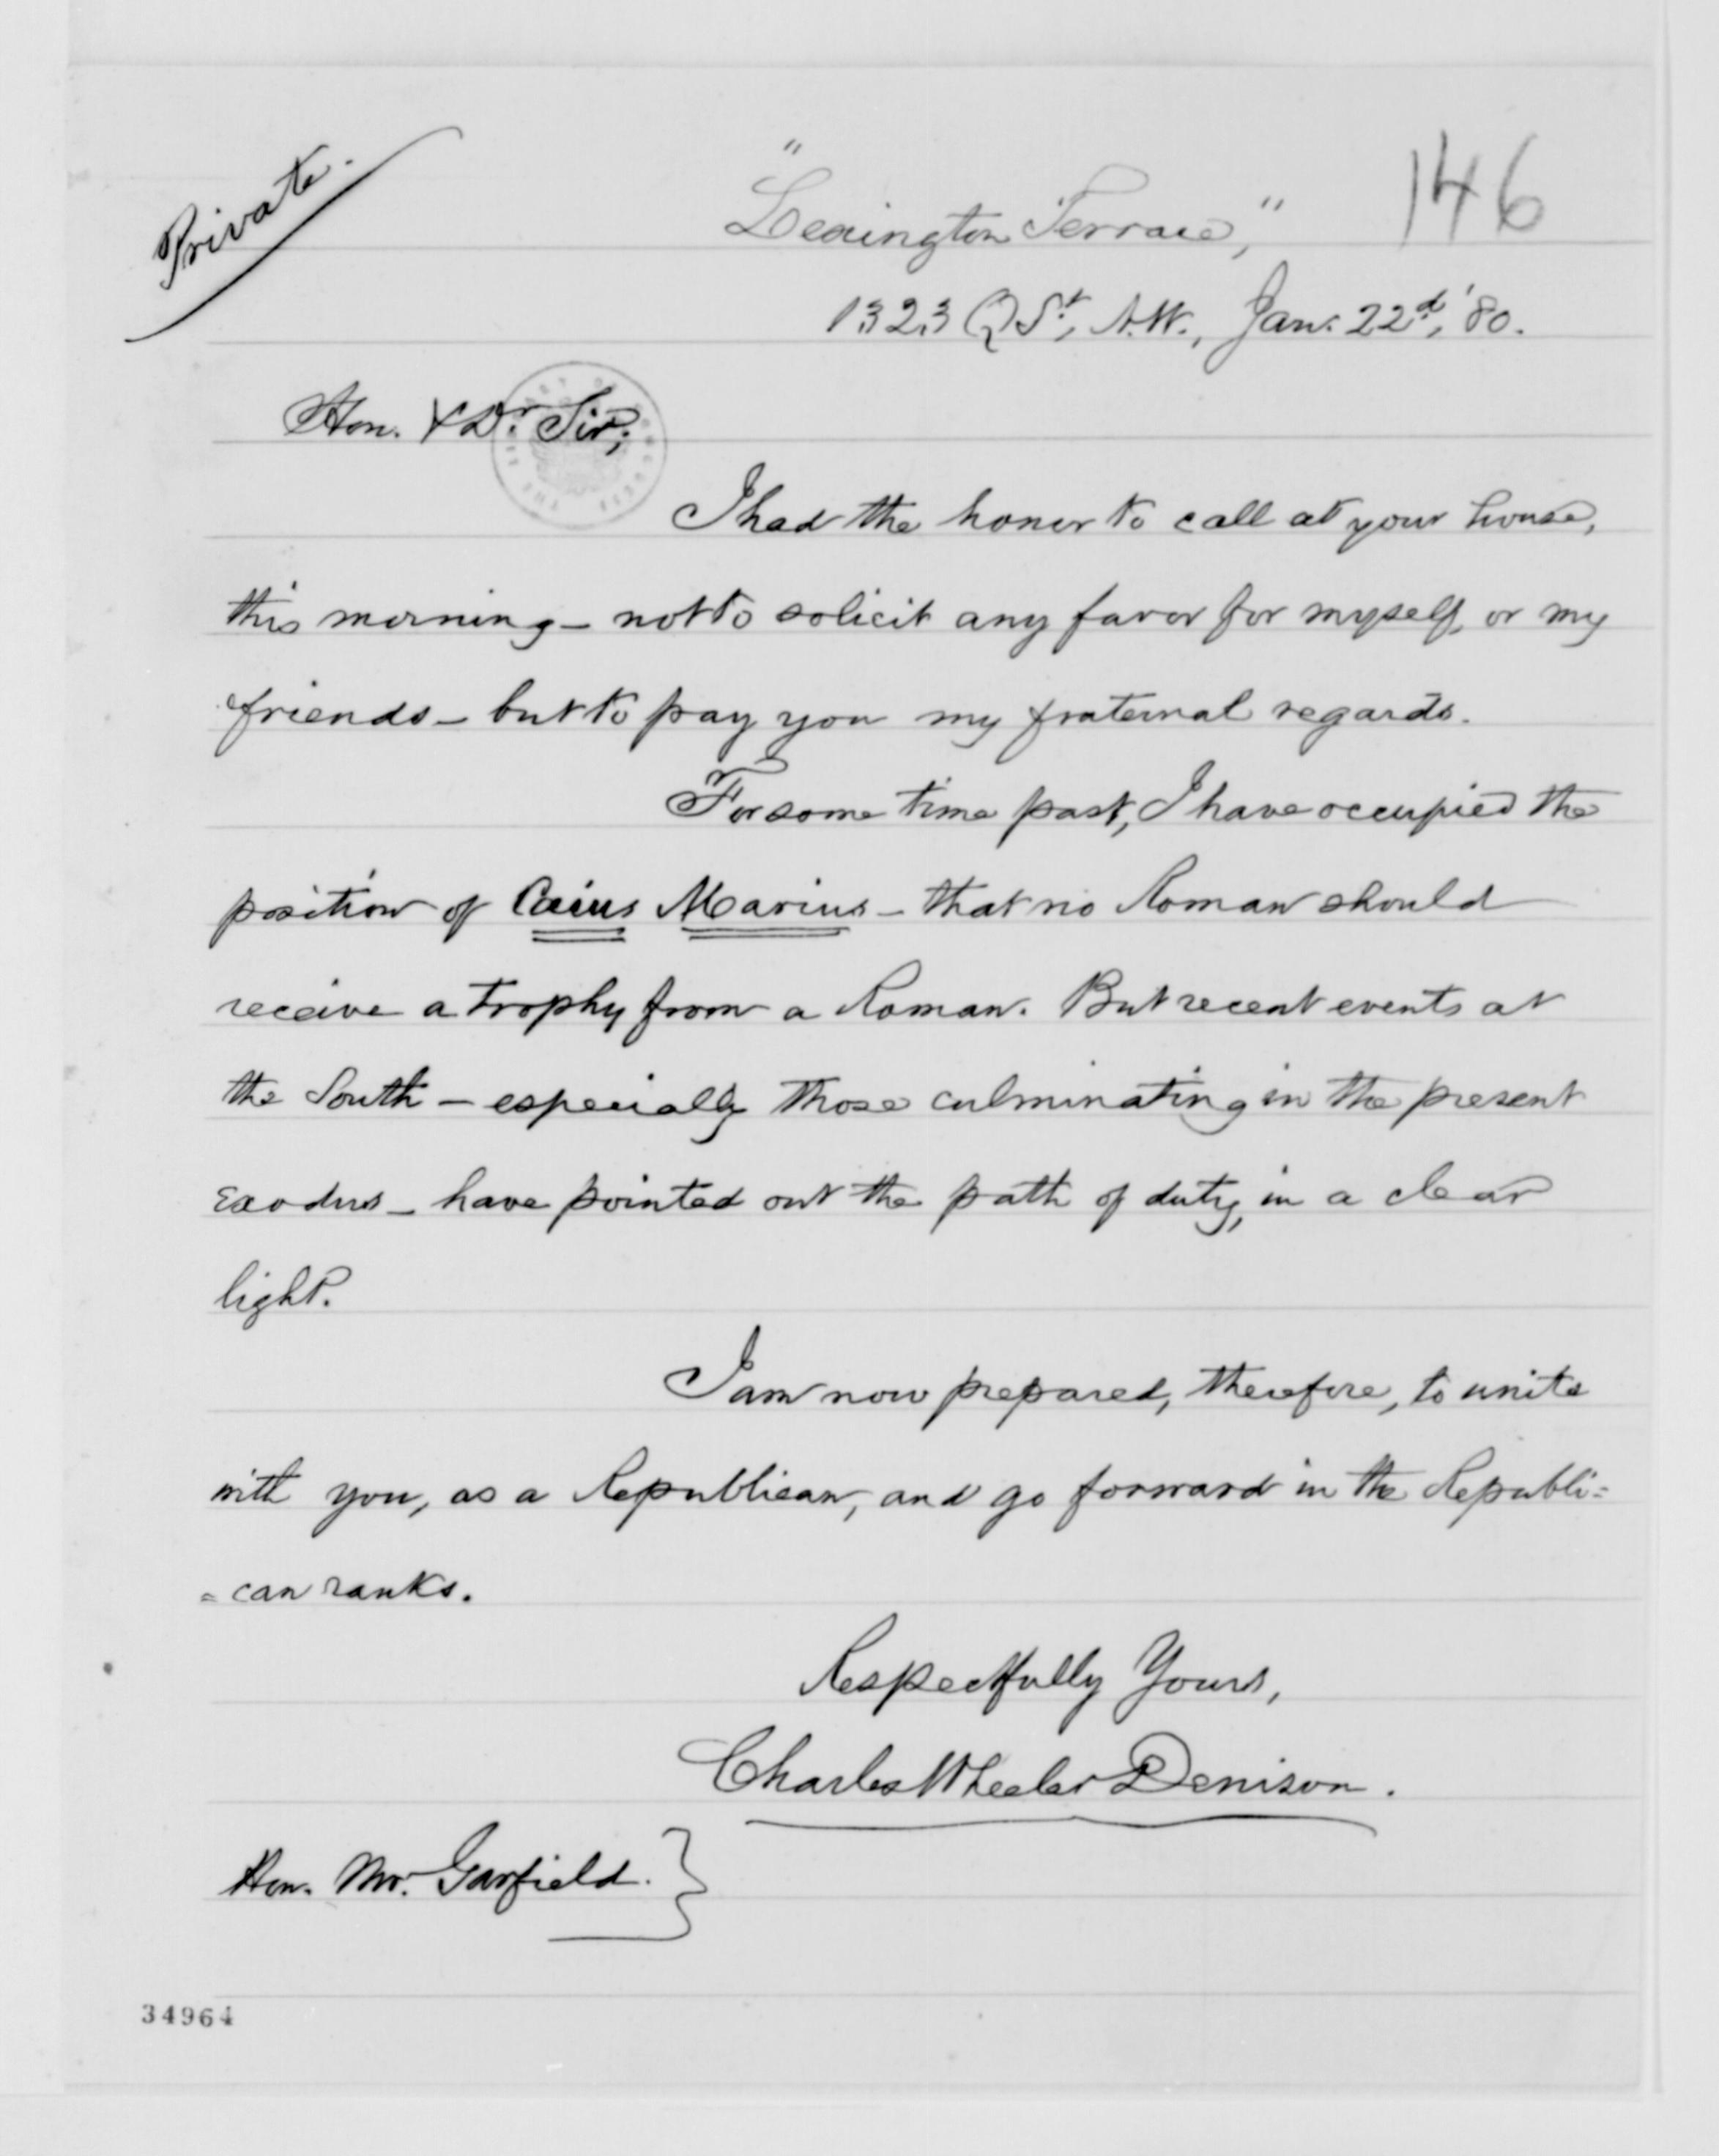 Private.
146
"Lexington Terrace,"
1323 Q St., N.W., Jan. 22d, '80.
Hon. & Dr. Sir;
I had the honor to call at your house,
this morning — not to solicit any favor for myself, or my
friends — but to pay you my fraternal regards.
For some time past, I have occupied the
position of Caius Marius — that no Roman should
receive a trophy from a Roman. But recent events at
the South — especially those culminating in the present
exodus — have pointed out the path of duty, in a clear
light.
I am now prepared, therefore, to unite
with you, as a Republican, and go forward in the Republi=
=can ranks.
Respectfully Yours,
Charles Wheeler Denison.
Hon. Mr. Garfield.
34964